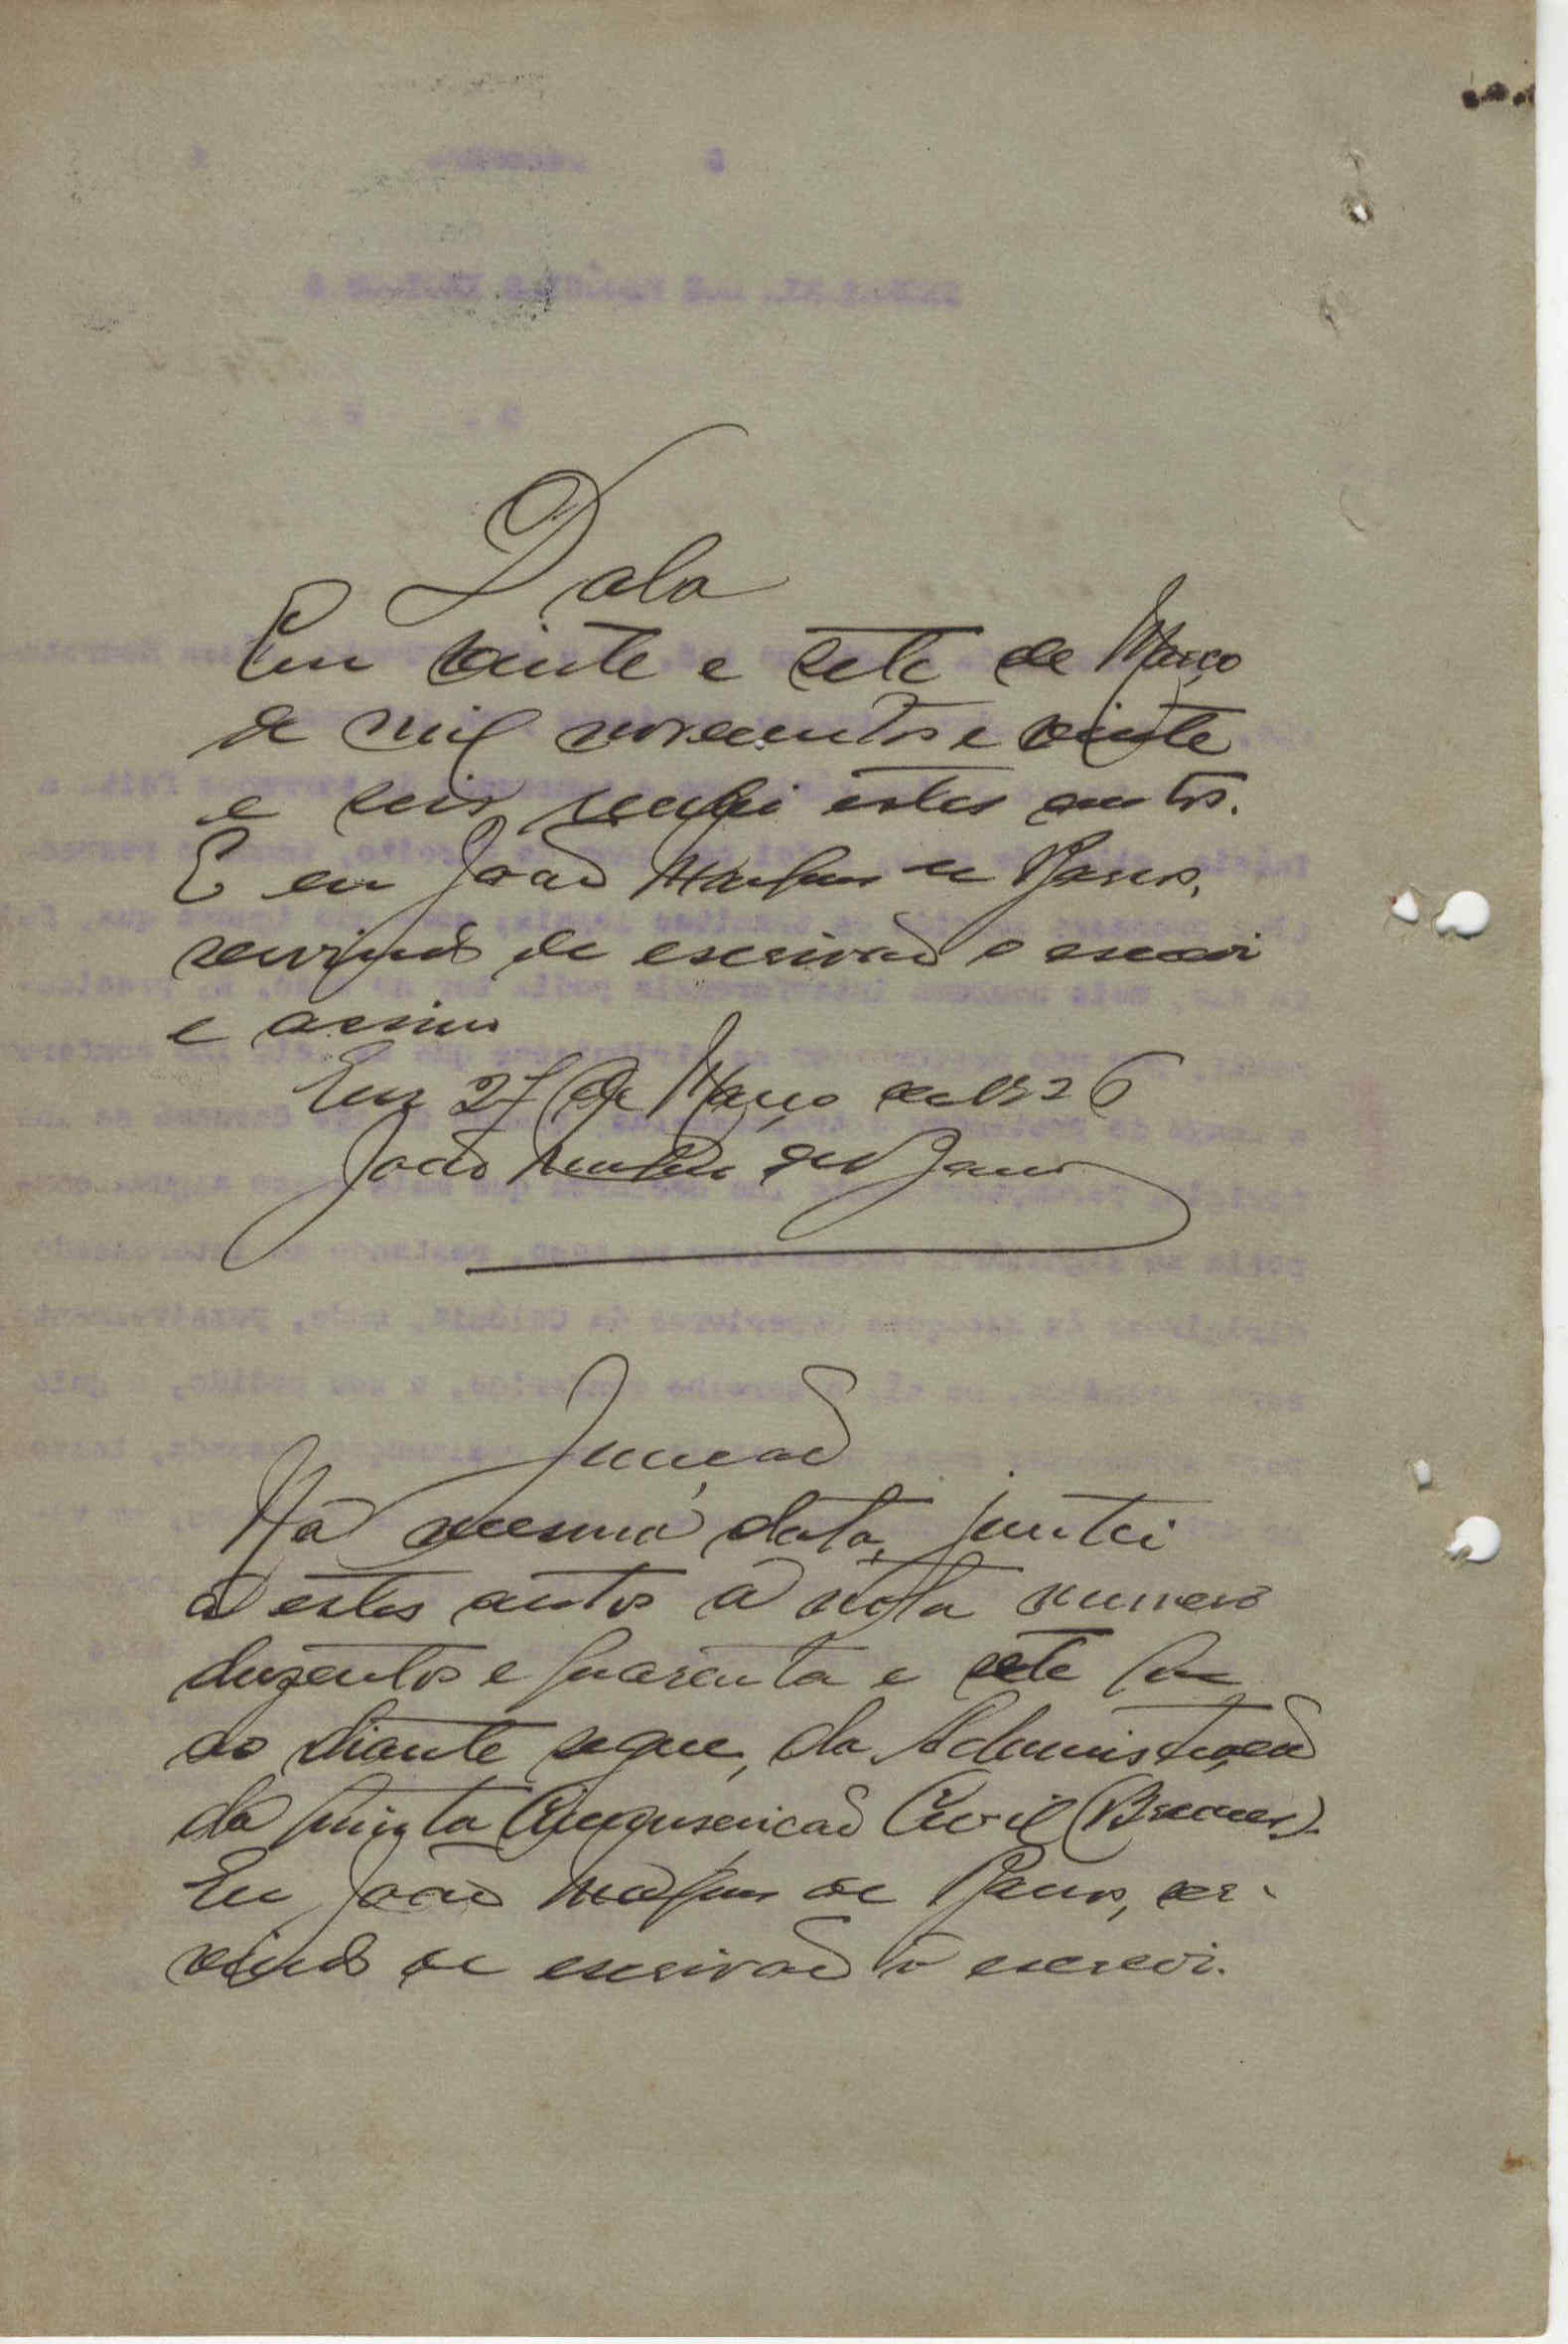 Data
Em vinte e sete de Março
de mil novecentos e vinte
e seis recebi estes autos.
E eu João Marques de Barros,
servindo de escrivão o escrevi
e assino
Em 27 de Março de 1926
João Marques de Barros
Junção
Na mesma data, juntei
a estes autos a nota numero
duzentos e quarenta e sete que
ao diante segue, da Administração
da quinta Circunscrição Civil
Eu João Marques de Barros, ser-
vindo de escrivão o escrevi.